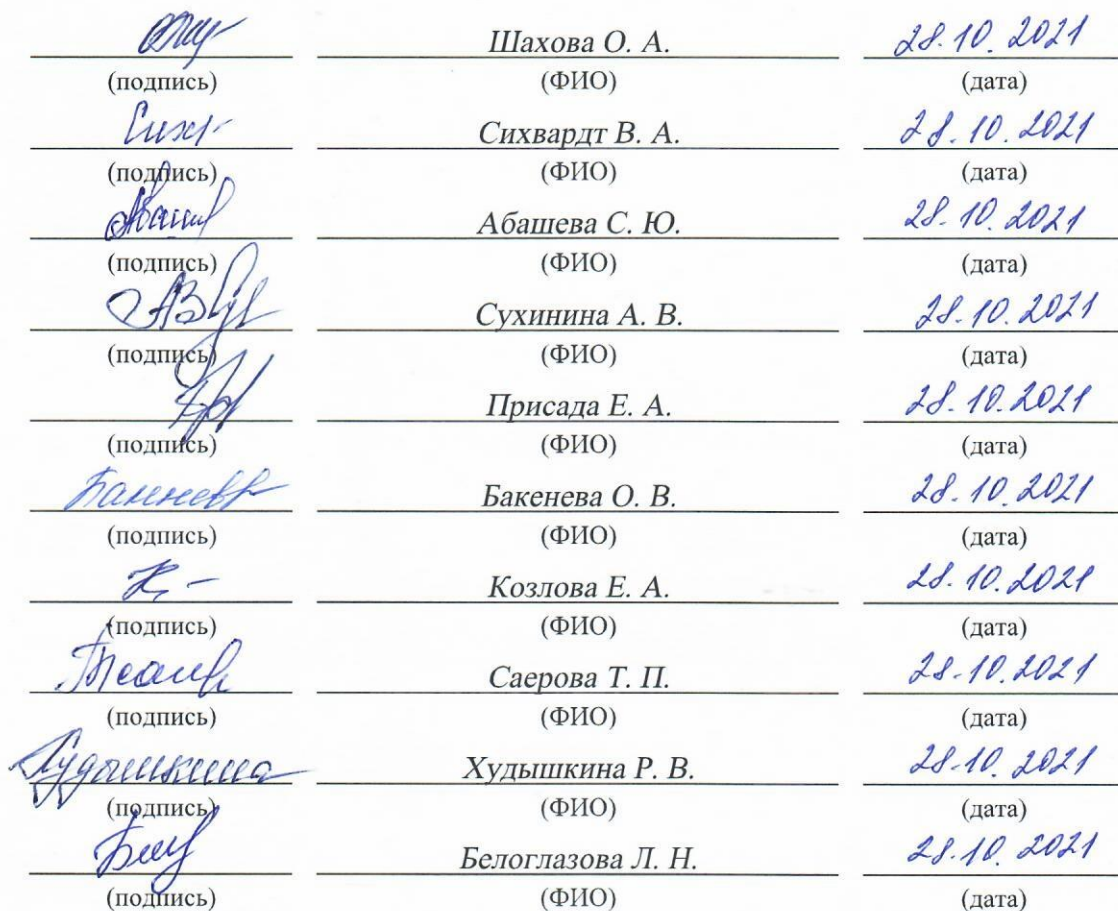 Шахова О. А. 28.10.2021
(подпись) (ФИО) (дата)
Сихвардт В. А. 28.10.2021
(подпись) (ФИО) (дата)
Абашева С. Ю. 28.10.2021
(подпись) (ФИО) (дата)
Сухинина А. В. 28.10.2021
(подпись) (ФИО) (дата)
Присада Е. А. 28.10.2021
(подпись) (ФИО) (дата)
Бакенева О. В. 28.10.2021
(подпись) (ФИО) (дата)
Козлова Е. А. 28.10.2021
(подпись) (ФИО) (дата)
Саерова Т. П. 28.10.2021
(подпись) (ФИО) (дата)
Худышкина Худышкина Р. В. 28.10.2021
(подпись) (ФИО) (дата)
Белоглазова Л. Н. 28.10.2021
(подпись) (ФИО) (дата)